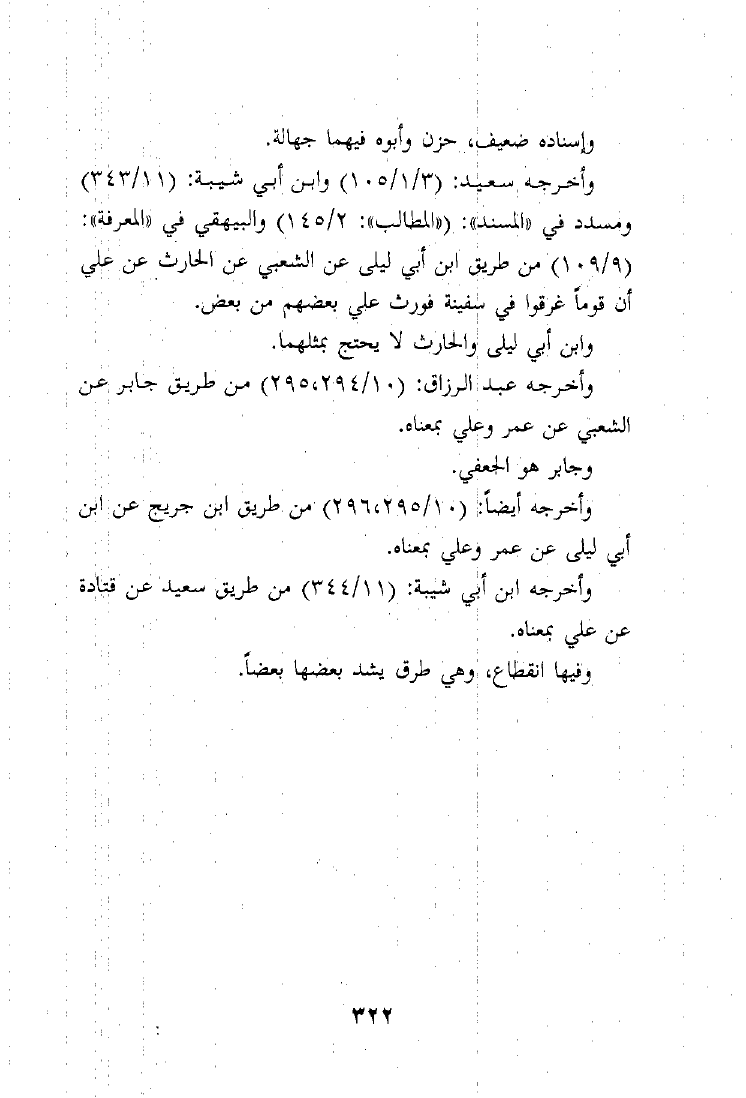 وإسناده ضعيف، حزن وأبوه فيهما جهالة.
وأخرجه سعيد: (١٠٥/١/٣) وابن أبي شيبة: (٣٤٣/١١)
ومسدد في «المسند»: («المطالب»: ١٤٥/٢) والبيهقي في «المعرفة»:
(١٠٩/٩) من طريق ابن أبي ليلى عن الشعبي عن الحارث عن علي
أن قوماً غرقوا في سفينة فورث علي بعضهم من بعض.
وابن أبي ليلى والحارث لا يحتج بمثلهما.
وأخرجه عبد الرزاق: (٢٩٥،٢٩٤/١٠) من طريق جابر عن
الشعبي عن عمر وعلي بمعناه.
وجابر هو الجعفي.
وأخرجه أيضاً: (٢٩٦،٢٩٥/١٠) من طريق ابن جريج عن ابن
أبي ليلى عن عمر وعلي بمعناه.
وأخرجه ابن أبي شيبة: (٣٤٤/١١) من طريق سعيد عن قتادة
عن علي بمعناه.
وفيها انقطاع، وهي طرق يشد بعضها بعضاً.
٣٢٢